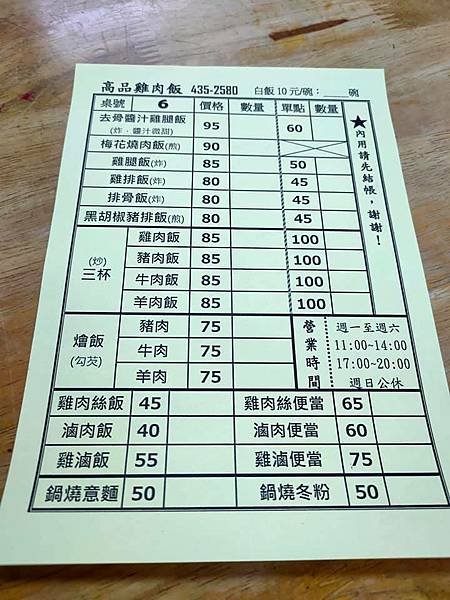 高品雞肉飯 435-2580 白飯 10 元/碗：____碗
桌號 6 價格 數量 單點 數量
去骨醬汁雞腿飯 95 60
(炸．醬汁微甜)
梅花燒肉飯(煎) 90
雞腿飯(炸) 85 50
雞排飯(炸) 80 45
排骨飯(炸) 80 45
黑胡椒豬排飯(煎) 80 45
★內用請先結帳，謝謝！
(炒)
三杯
雞肉飯 85 100
豬肉飯 85 100
牛肉飯 85 100
羊肉飯 85 100
燴飯
(勾芡)
豬肉 75
牛肉 75
羊肉 75
營業時間
週一至週六
11:00~14:00
17:00~20:00
週日公休
雞肉絲飯 45 雞肉絲便當 65
滷肉飯 40 滷肉便當 60
雞滷飯 55 雞滷便當 75
鍋燒意麵 50 鍋燒冬粉 50